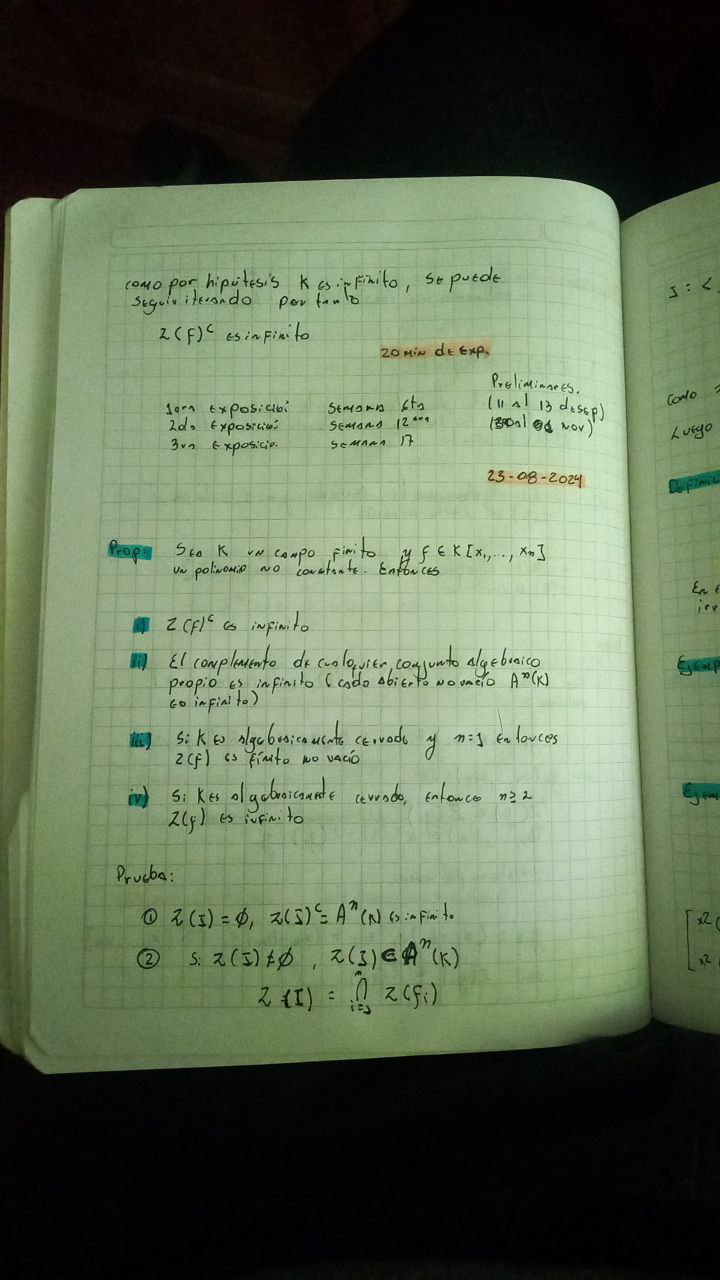 como por hipótesis K es infinito, se puede
seguir iterando por tanto
Z(f)ᶜ es infinito
20 min de exp.
Preliminares.
1era exposición semana 6ta (11 al 13 de sep)
2da exposición semana 12ava nov)
3era exposicio. semana 17
23-08-2024
Prop: Sea K un campo finito y f ∈ K[x₁,..., xₙ]
un polinomio no constante. Entonces
i) Z(f)ᶜ es infinito
ii) El complemento de cualquier conjunto algebraico
propio es infinito (cada abierto no vacío Aⁿ(K)
es infinito)
iii) Si K es algebraicamente cerrado y n=1 entonces
Z(f) es finito no vacío
iv) Si K es algebraicamente cerrado, entonce n≥2
Z(f) es infinito
Prueba:
① Z(I) = ∅, Z(I)ᶜ = Aⁿ(K) es infinito
② Si Z(I) ≠ ∅, Z(I) ⊊ Aⁿ(K)
Z(I) = ⋂ᵢ₌₁ᵐ Z(fᵢ)
como
Luego